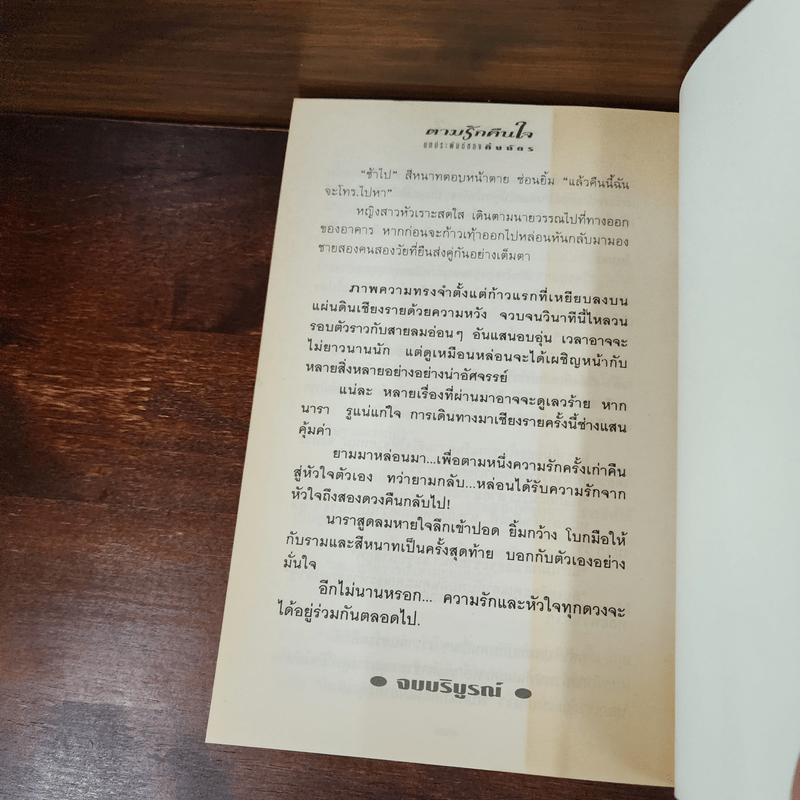 ตามรักคืนใจ
บทประพันธ์ของ กิ่งฉัตร
"ช้าไป" สีหนาทตอบหน้าตาย ซ่อนยิ้ม "แล้วคืนนี้ฉัน
จะโทร.ไปหา"
หญิงสาวหัวเราะสดใส เดินตามนายวรรณไปที่ทางออก
ของอาคาร หากก่อนจะก้าวเท้าออกไปหล่อนหันกลับมามอง
ชายสองคนสองวัยที่ยืนส่งคู่กันอย่างเต็มตา
ภาพความทรงจำตั้งแต่ก้าวแรกที่เหยียบลงบน
แผ่นดินเชียงรายด้วยความหวัง จวบจนวินาทีนี้ไหลวน
รอบตัวราวกับสายลมอ่อนๆ อันแสนอบอุ่น เวลาอาจจะ
ไม่ยาวนานนัก แต่ดูเหมือนหล่อนจะได้เผชิญหน้ากับ
หลายสิ่งหลายอย่างอย่างน่าอัศจรรย์
แน่ละ หลายเรื่องที่ผ่านมาอาจจะดูเลวร้าย หาก
นารา รู้แน่แก่ใจ การเดินทางมาเชียงรายครั้งนี้ช่างแสน
คุ้มค่า
ยามมาหล่อนมา...เพื่อตามหนึ่งความรักครั้งเก่าคืน
สู่หัวใจตัวเอง ทว่ายามกลับ...หล่อนได้รับความรักจาก
หัวใจถึงสองดวงคืนกลับไป!
นาราสูดลมหายใจลึกเข้าปอด ยิ้มกว้าง โบกมือให้
กับรามและสีหนาทเป็นครั้งสุดท้าย บอกกับตัวเองอย่าง
มั่นใจ
อีกไม่นานหรอก... ความรักและหัวใจทุกดวงจะ
ได้อยู่ร่วมกันตลอดไป.
● จบบริบูรณ์ ●